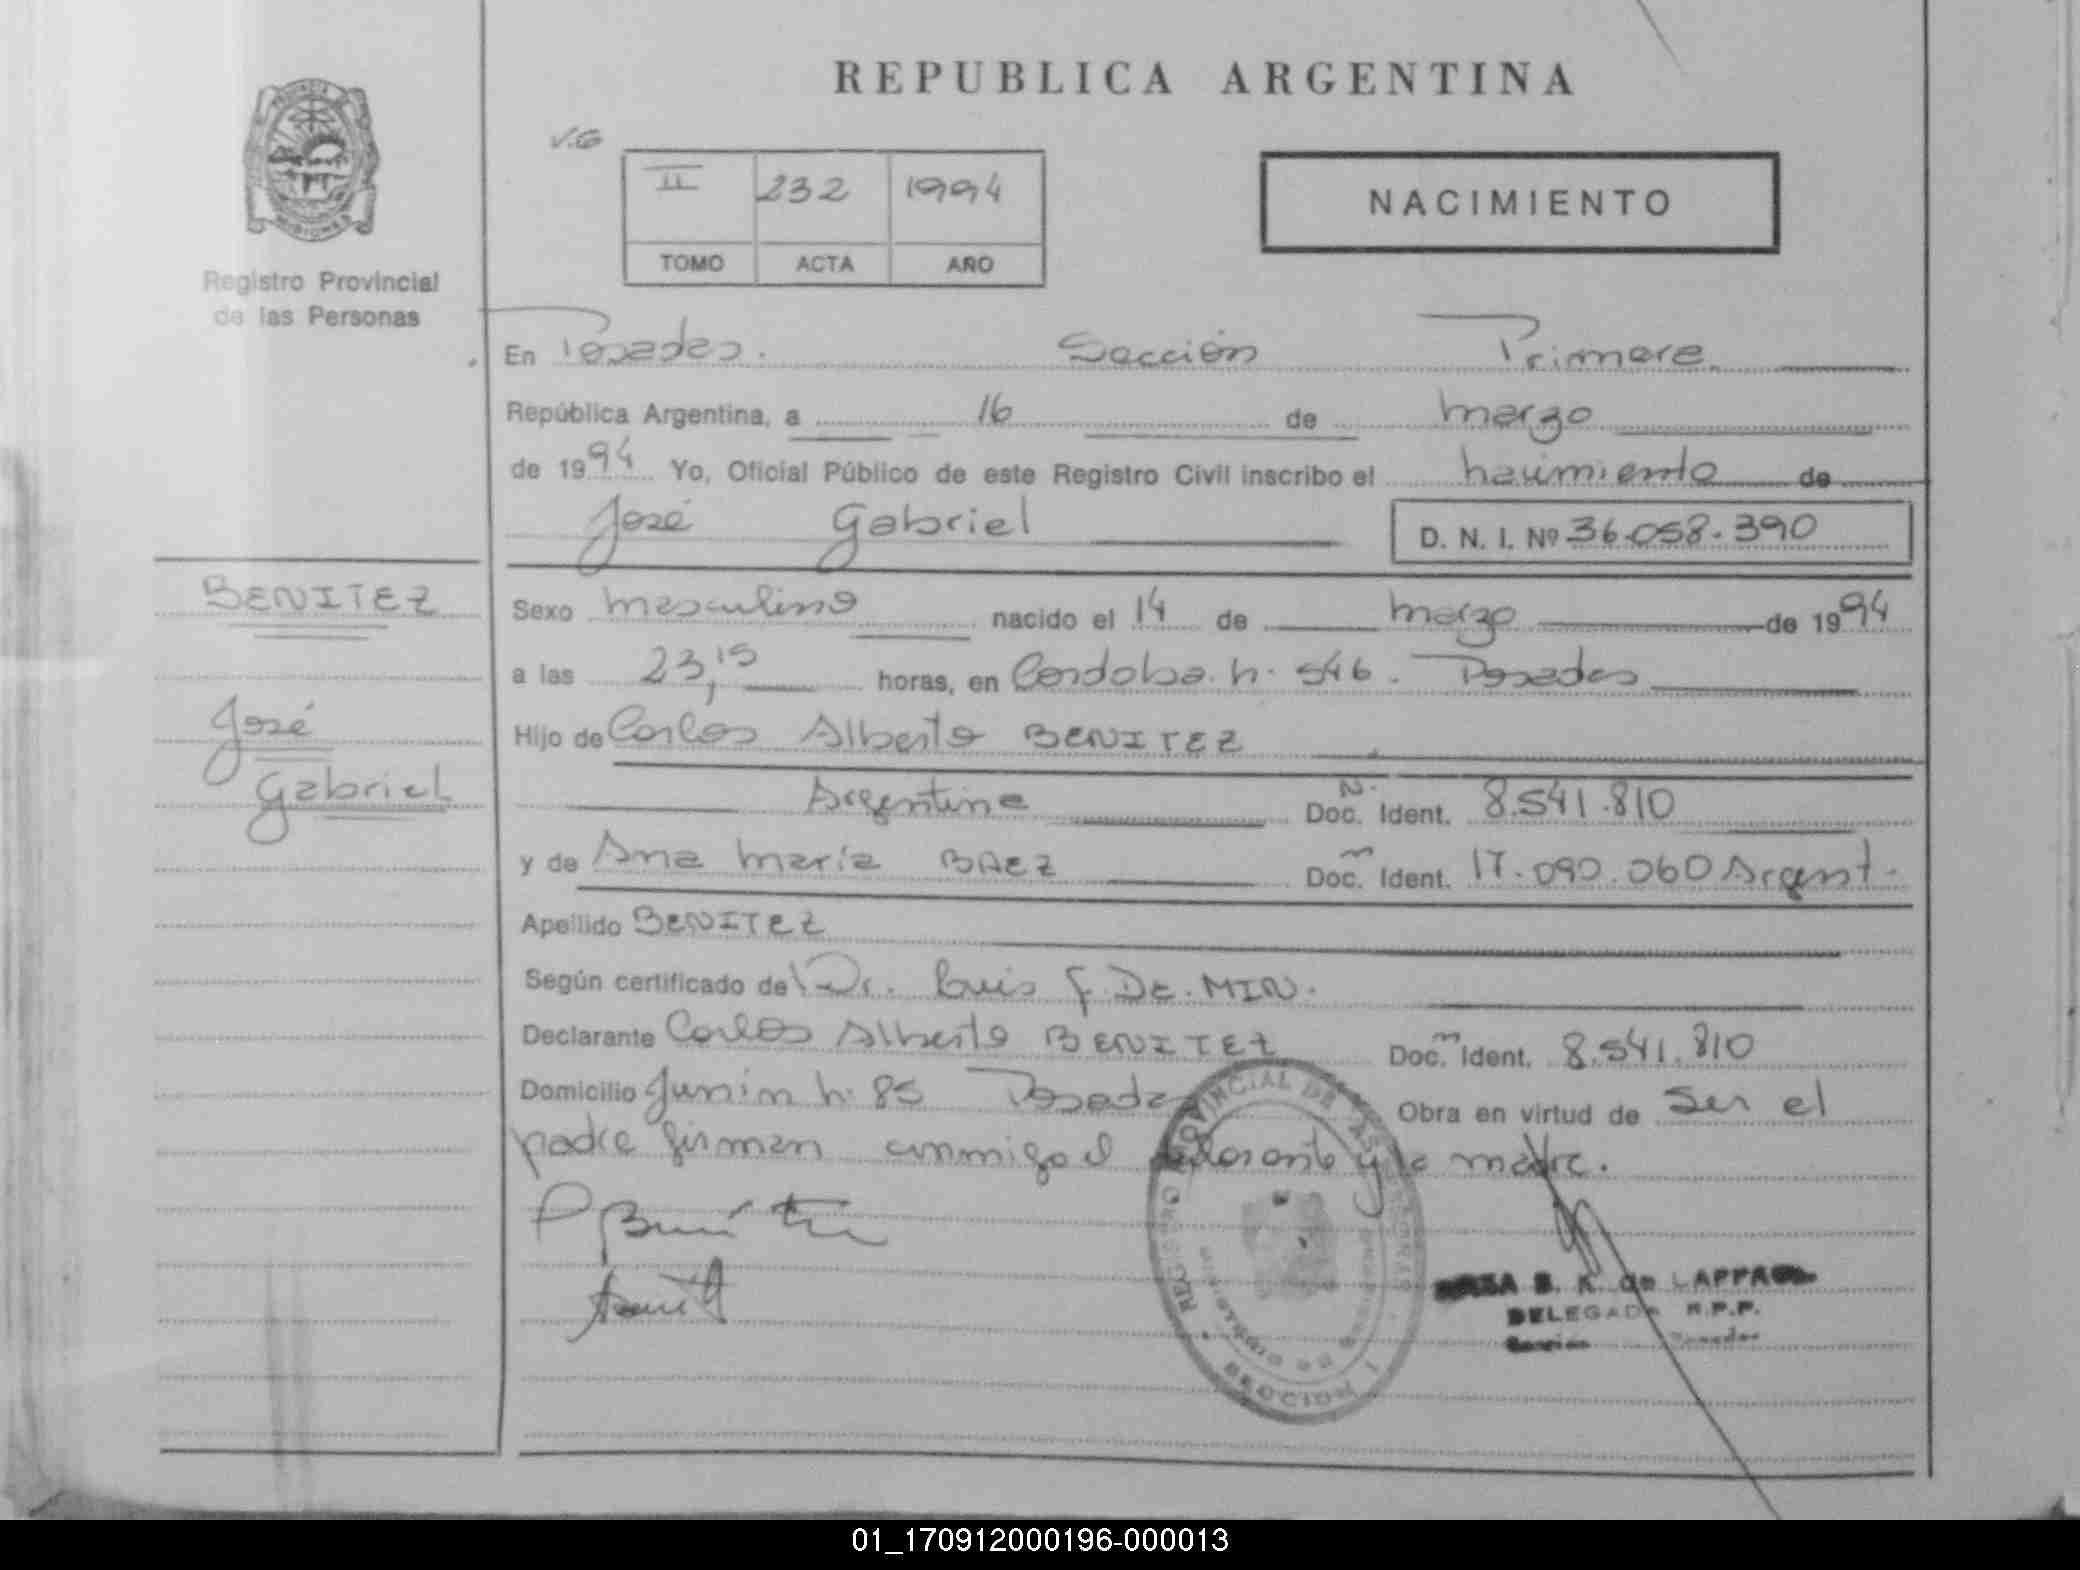 REPUBLICA ARGENTINA
V.G
II 232 1994
TOMO ACTA AÑO
NACIMIENTO
Registro Provincial
de las Personas
En Posadas. Sección Primera.
República Argentina, a 16 de marzo
de 1994 Yo, Oficial Público de este Registro Civil inscribo el nacimiento de
José Gabriel
D. N. I. Nº 36.058.390
BENITEZ
José
Gabriel
Sexo masculino nacido el 14 de marzo de 1994
a las 23,15 horas, en Cordoba. n. 546. Posadas
Hijo de Carlos Alberto BENITEZ
Argentina Doc. Ident. 8.541.810
y de Ana María BAEZ Doc. Ident. 17.090.060 Argent.
Apellido BENITEZ
Según certificado de Dr. Luis F. DE. MIN.
Declarante Carlos Alberto BENITEZ Doc. Ident. 8.541.810
Domicilio Junín n. 85 Posadas Obra en virtud de ser el
padre firman conmigo el declarante y la madre.
REGISTRO PROVINCIAL DE LAS PERSONAS
MISIONES
DELEGADA R.P.P.
Sección Posadas
01_170912000196-000013